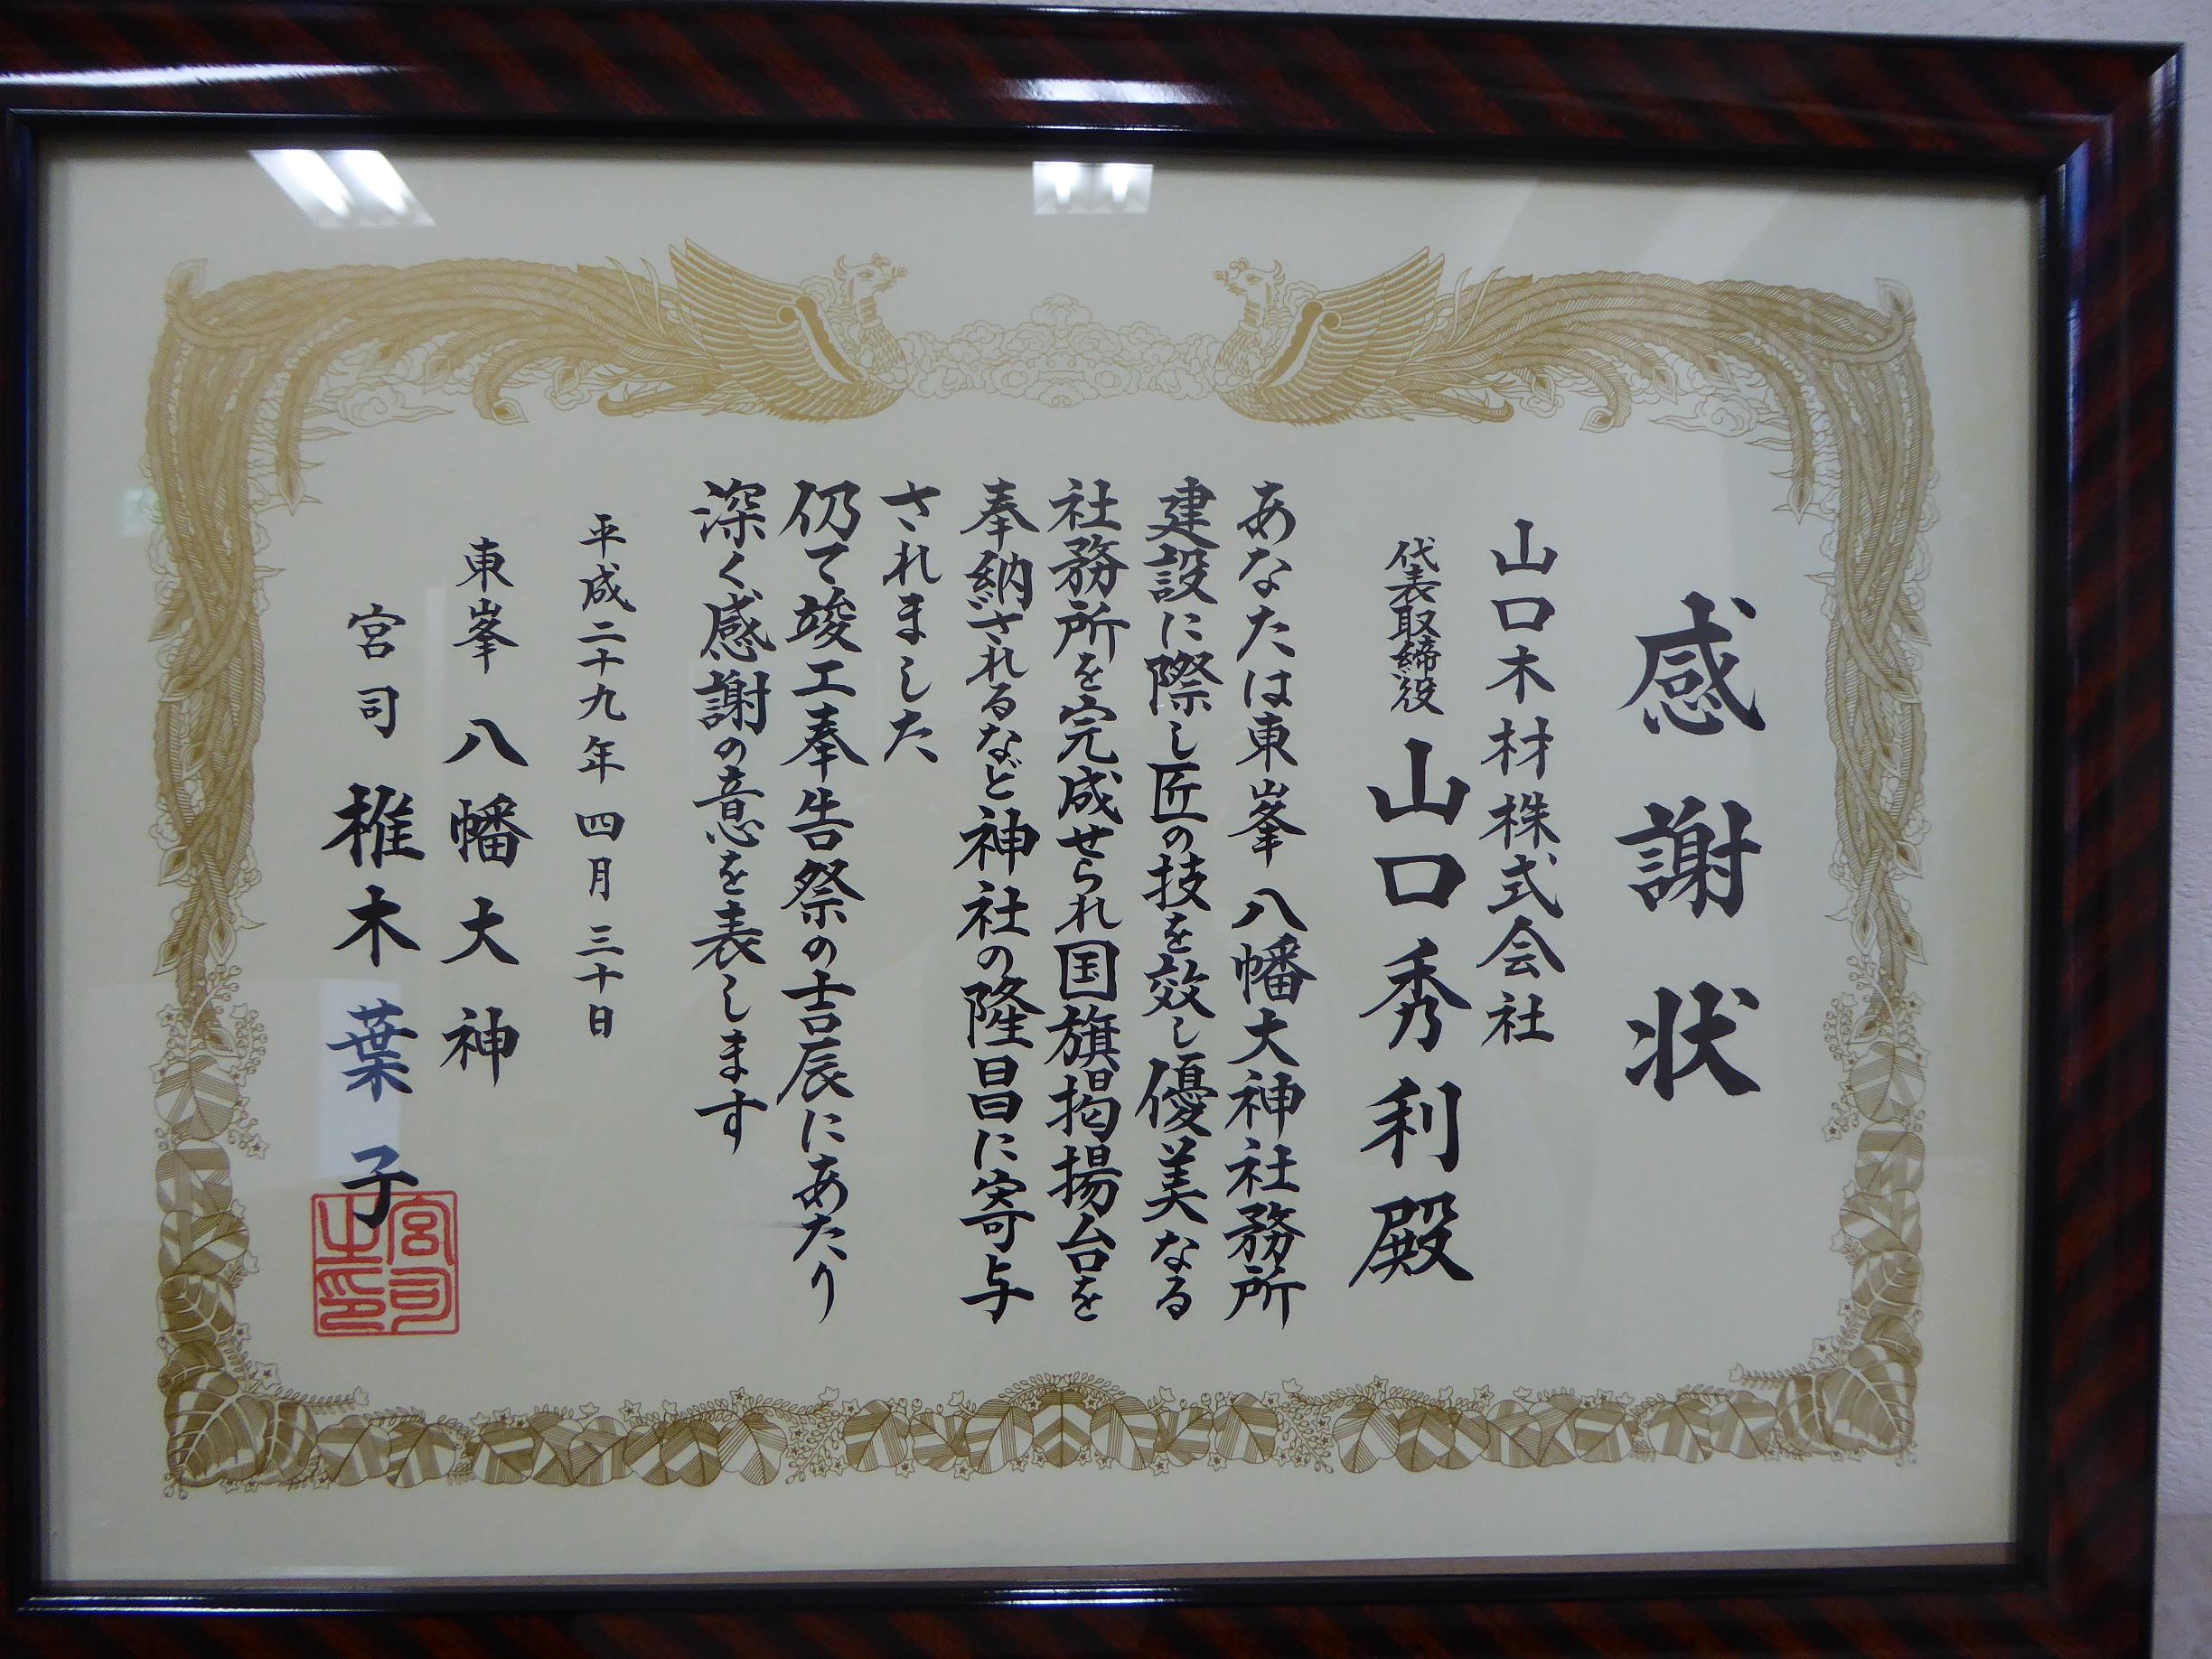 感謝状
山口木材株式会社
代表取締役 山口秀利殿
あなたは東峯八幡大神社務所
建設に際し匠の技を効し優美なる
社務所を完成せられ国旗掲揚台を
奉納されるなど神社の隆昌に寄与
されました
仍て竣工奉告祭の吉辰にあたり
深く感謝の意を表します
平成二十九年四月三十日
東峯 八幡大神
宮司 椎木葉子
宮司之印